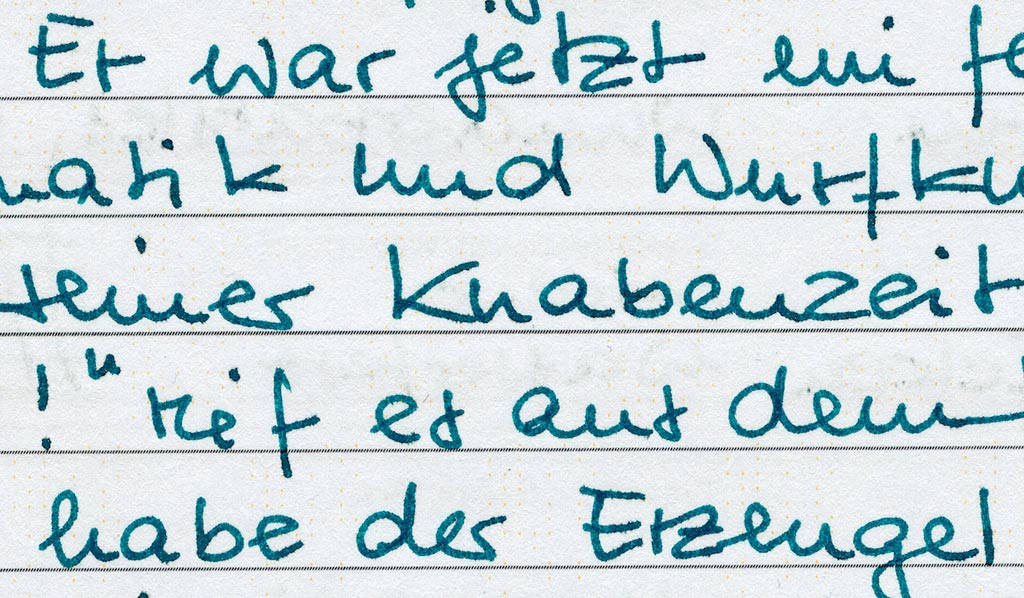 Er war jetzt ein fe
matik und Wurfku
seiner Knabenzeit
!" rief es aus dem
habe der Erzengel